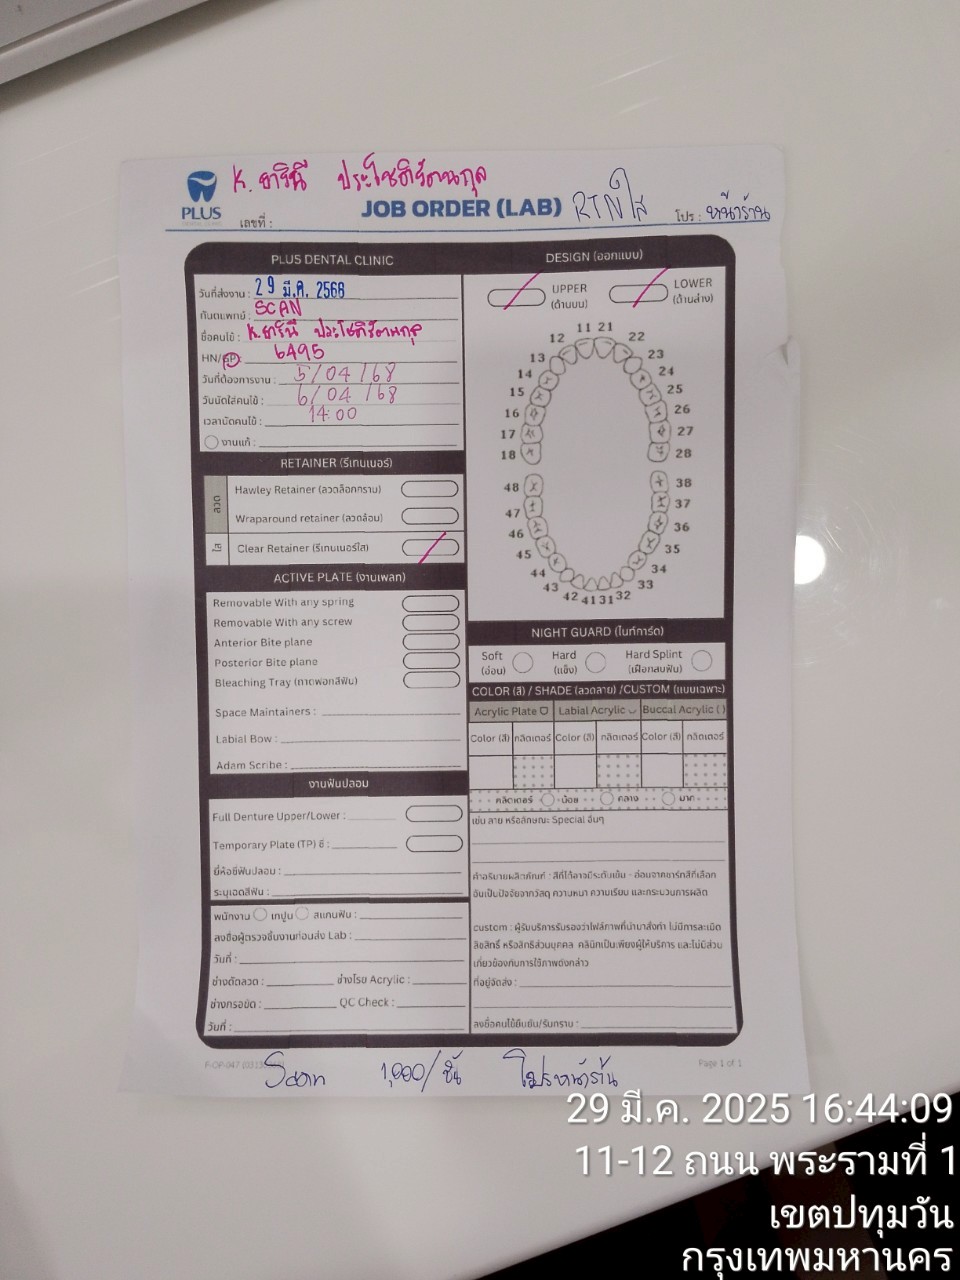 K. ธาริณี ประโชติรัตนกุล
PLUS
DENTAL CLINIC
JOB ORDER (LAB) RTN ใส
เลขที่ :
โปร : หน้าร้าน
PLUS DENTAL CLINIC
วันที่ส่งงาน : 29 มี.ค. 2568
ทันตแพทย์ : SCAN
ชื่อคนไข้ : K.ธาริณี ประโชติรัตนกุล
HN/SP : 6495
วันที่ต้องการงาน : 5/04/68
วันนัดใส่คนไข้ : 6/04/68
เวลานัดคนไข้ : 14:00
งานแก้ :
RETAINER (รีเทนเนอร์)
ลวด
Hawley Retainer (ลวดล็อกกราม)
Wraparound retainer (ลวดล้อม)
ใส
Clear Retainer (รีเทนเนอร์ใส)
ACTIVE PLATE (งานเพลท)
Removable With any spring
Removable With any screw
Anterior Bite plane
Posterior Bite plane
Bleaching Tray (ถาดฟอกสีฟัน)
Space Maintainers :
Labial Bow :
Adam Scribe :
งานฟันปลอม
Full Denture Upper/Lower :
Temporary Plate (TP) ซี่ :
ยี่ห้อซี่ฟันปลอม :
ระบุเฉดสีฟัน :
พนักงาน เทปูน สแกนฟัน :
ลงชื่อผู้ตรวจชิ้นงานก่อนส่ง Lab :
วันที่ :
ช่างดัดลวด : ช่างโรย Acrylic :
ช่างกรอขัด : QC Check :
วันที่ :
DESIGN (ออกแบบ)
UPPER
(ด้านบน)
LOWER
(ด้านล่าง)
11 21
12 22
13 23
14 24
15 25
16 26
17 27
18 28
48 38
47 37
46 36
45 35
44 34
43 33
42 41 31 32
NIGHT GUARD (ไนท์การ์ด)
Soft
(อ่อน)
Hard
(แข็ง)
Hard Splint
(เฝือกสบฟัน)
COLOR (สี) / SHADE (ลวดลาย) /CUSTOM (แบบเฉพาะ)
Acrylic Plate Labial Acrylic Buccal Acrylic ( )
Color (สี) กลิตเตอร์ Color (สี) กลิตเตอร์ Color (สี) กลิตเตอร์
กลิตเตอร์ น้อย กลาง มาก
เช่น ลาย หรือลักษณะ Special อื่นๆ
คำอธิบายผลิตภัณฑ์ : สีที่ได้อาจมีระดับเข้ม - อ่อนจากชาร์ทสีที่เลือก
อันเป็นปัจจัยจากวัสดุ ความหนา ความเรียบ และกระบวนการผลิต
custom : ผู้รับบริการรับรองว่าไฟล์ภาพที่นำมาสั่งทำ ไม่มีการละเมิด
ลิขสิทธิ์ หรือสิทธิส่วนบุคคล คลินิกเป็นเพียงผู้ให้บริการ และไม่มีส่วน
เกี่ยวข้องกับการใช้ภาพดังกล่าว
ที่อยู่จัดส่ง :
ลงชื่อคนไข้ยืนยัน/รับทราบ :
Page 1 of 1
Scan 1,000/ชิ้น โปรหน้าร้าน
29 มี.ค. 2025 16:44:09
11-12 ถนน พระรามที่ 1
เขตปทุมวัน
กรุงเทพมหานคร